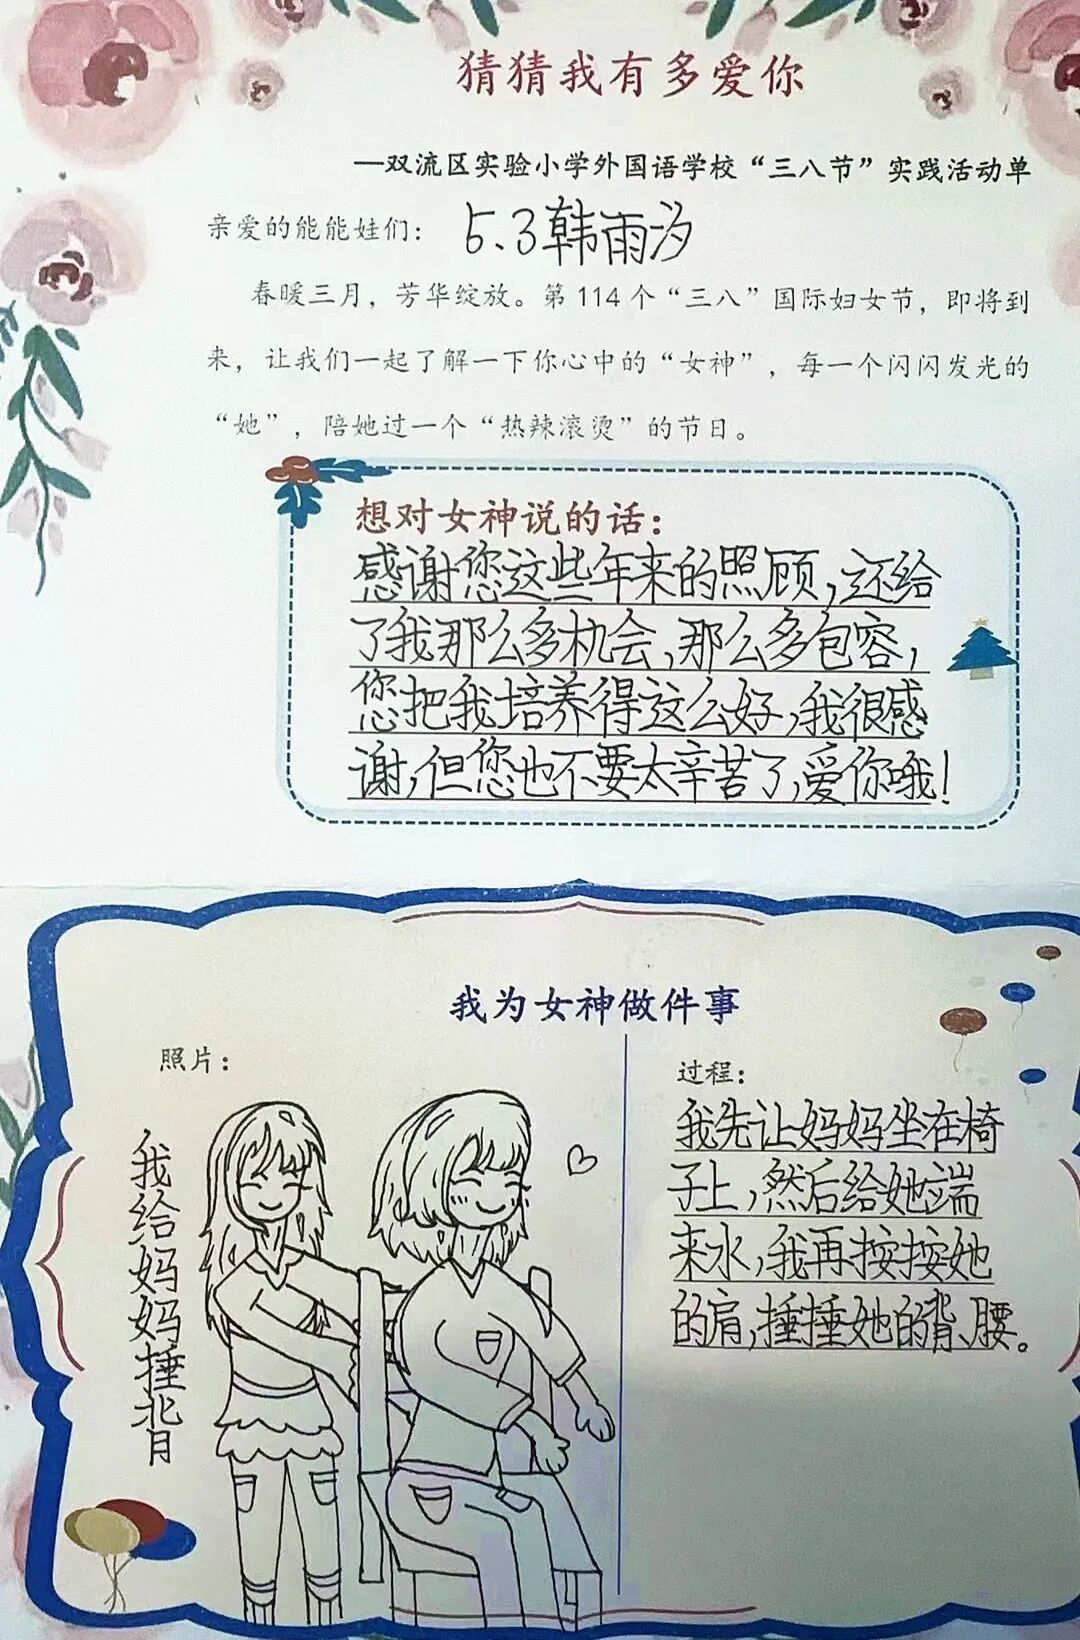 猜猜我有多爱你
—双流区实验小学外国语学校“三八节”实践活动单
亲爱的能能娃们： 5.3韩雨汐
春暖三月，芳华绽放。第114个“三八”国际妇女节，即将到
来，让我们一起了解一下你心中的“女神”，每一个闪闪发光的
“她”，陪她过一个“热辣滚烫”的节日。
想对女神说的话：
感谢您这些年来的照顾，还给
了我那么多机会，那么多包容，
您把我培养得这么好，我很感
谢，但您也不要太辛苦了，爱你哦！
我为女神做件事
照片：
我给妈妈捶背
过程：
我先让妈妈坐在椅
子上，然后给她端
来水，我再按按她
的肩，捶捶她的背、腰。